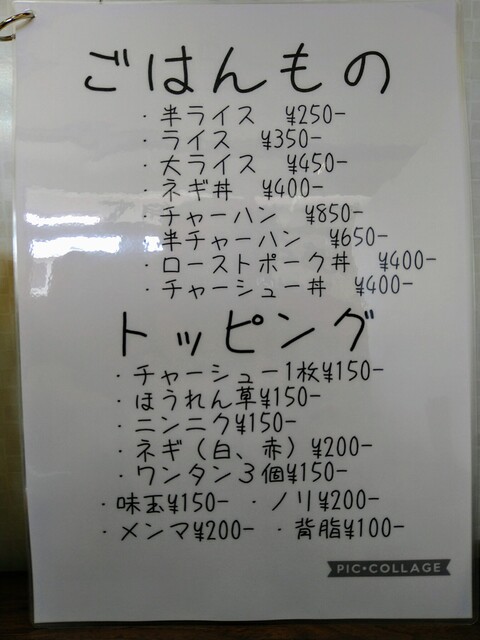 ごはんもの
・半ライス ¥250-
・ライス ¥350-
・大ライス ¥450-
・ネギ丼 ¥400-
・チャーハン ¥850-
・半チャーハン ¥650-
・ローストポーク丼 ¥400-
・チャーシュー丼 ¥400-
トッピング
・チャーシュー1枚¥150-
・ほうれん草¥150-
・ニンニク¥150-
・ネギ(白、赤)¥200-
・ワンタン3個¥150-
・味玉¥150- ・ノリ¥200-
・メンマ¥200- ・背脂¥100-
PIC•COLLAGE